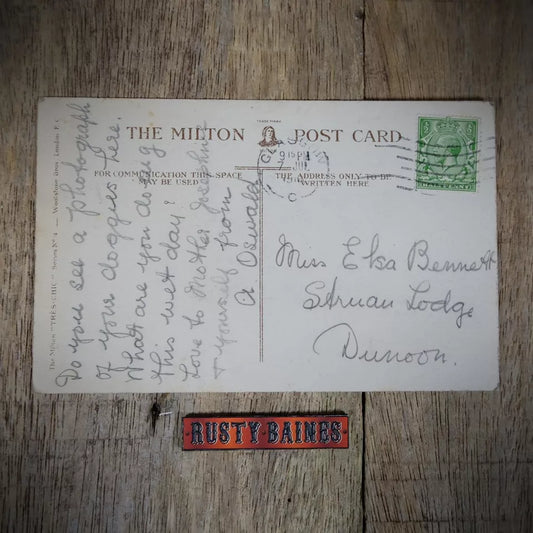 TRADE MARK
THE MILTON POST CARD
FOR COMMUNICATION THIS SPACE
MAY BE USED
THE ADDRESS ONLY TO BE
WRITTEN HERE
The Milton "TRES-CHIC" Series No 4 Woolstone Bros. London E.C.
Do you see a photograph
of your doggies here.
What are you doing
this wet day?
Love to Mother Josephine
& yourself from
A Oswald
9 15 PM
JUL
HALFPENNY
Miss Elsa Bennett
Struan Lodge
Dunoon.
RUSTY·BAINES